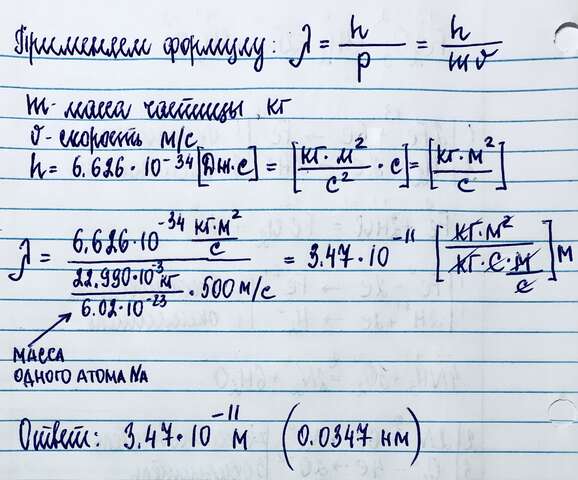 Применяем формулу: λ = h/p = h/mv
m - масса частицы, кг
v - скорость м/с
h = 6.626·10⁻³⁴ [Дж·с] = [кг·м²/с² · с] = [кг·м²/с]
λ = (6.626·10⁻³⁴ кг·м²/с) / (22.990·10⁻³ кг / 6.02·10⁻²³ · 500 м/с) = 3.47·10⁻¹¹ [кг·м²/кг·с·м/с] м
МАССА
ОДНОГО АТОМА Na
Ответ: 3.47·10⁻¹¹ м (0.0347 нм)